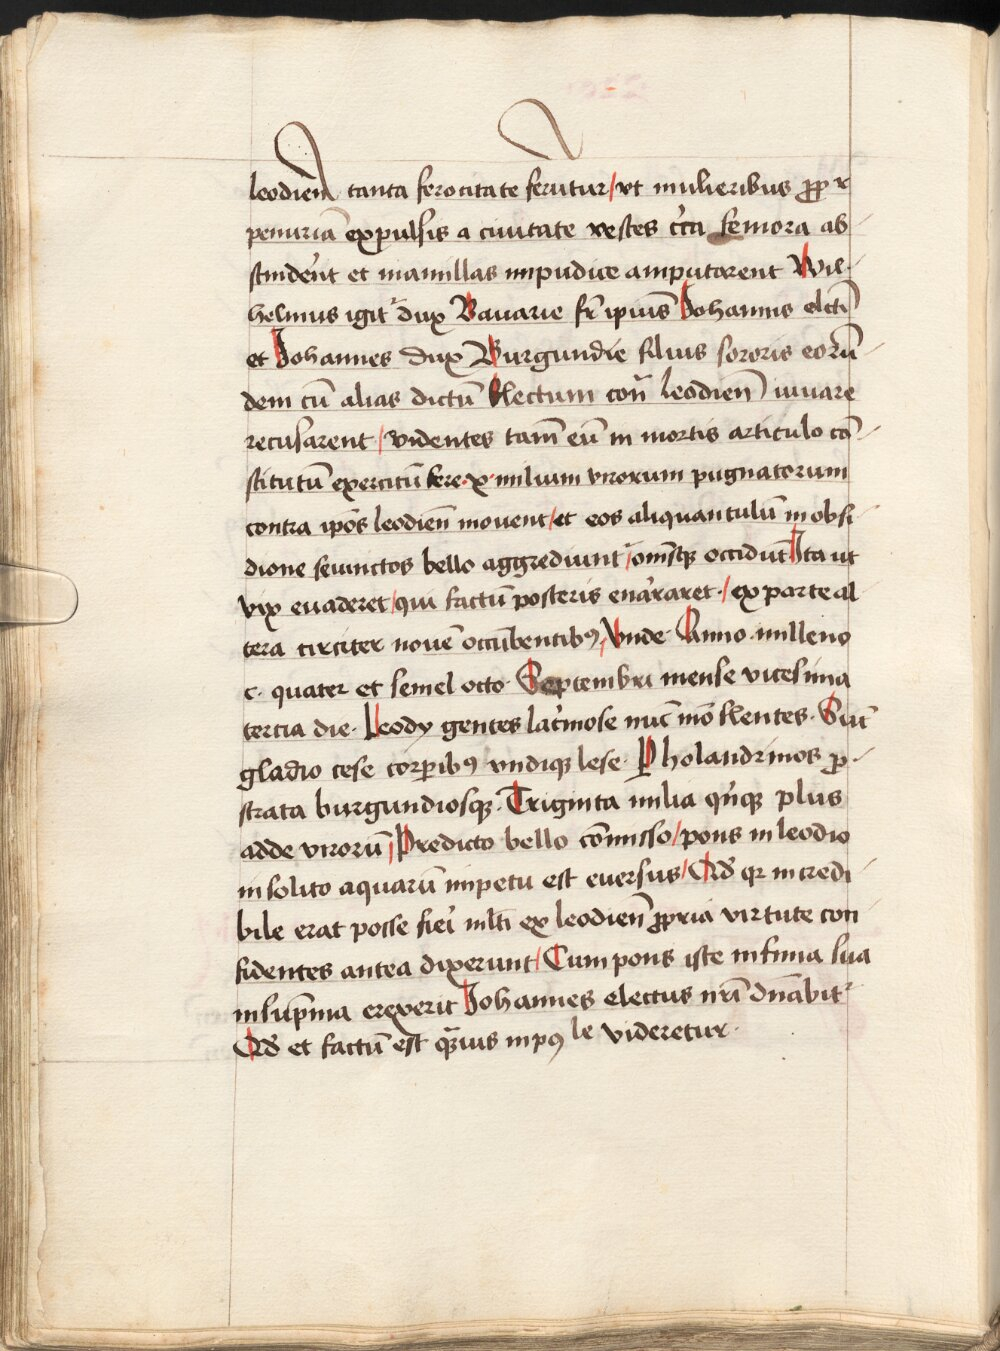 leodien̄ tanta ferocitate ferutur / vt mulieribus ꝓpt̄
penuriā expulsis a ciuitate vestes cͥca femora ab
scinder̄nt et mamillas impudice amputarent Wil-
helmus igitᷣ dux Bauarie fr̄ ipius̄ Johannis elcti
et Johannes dux Burgundie filius sororis eorū
dem cū alias dictū Electum cont̄ leodien̄ iuuare
recusarent / videntes tam̄ eū in mortis articulo cō-
stitutū exercitū fere ·x· milium virorum pugnatorum
contra ip̄os leodien̄ mouent / et eos aliquantulū in obsi
dione seiunctos bello aggrediunt᷑ / omsqꝫ occidūt Ita ut
vix euaderet / qui factū posteris enarraret · / ex parte al
tera circiter nouē occūbentibꝰ / Vnde Anno milleno
c· quater et semel octo Septembri mense vicesima
tercia die · Leody gentes lacͥmose nūc mō flentes · Sūt
gladio cese corꝑibꝰ vndiqꝫ lese · Pholandrinos ꝓ-
strata burgundiosqꝫ · Triginta milia qͥnqꝫ plus
adde virorū / Predicto bello cōmisso / pons in leodio
insolito aquarū impetu est euersus / Qd̄ qꝛ incredi
bile erat posse fieri ml̄ti ex leodien̄ ꝓpria virtute con
fidentes antea dixerunt / Cum pons iste infima sua
in sup̄ma erexerit Johannes electus nr̄i dn̄abit᷑
Qd̄ et factū est qͣuis inpoꝰle videretur ·